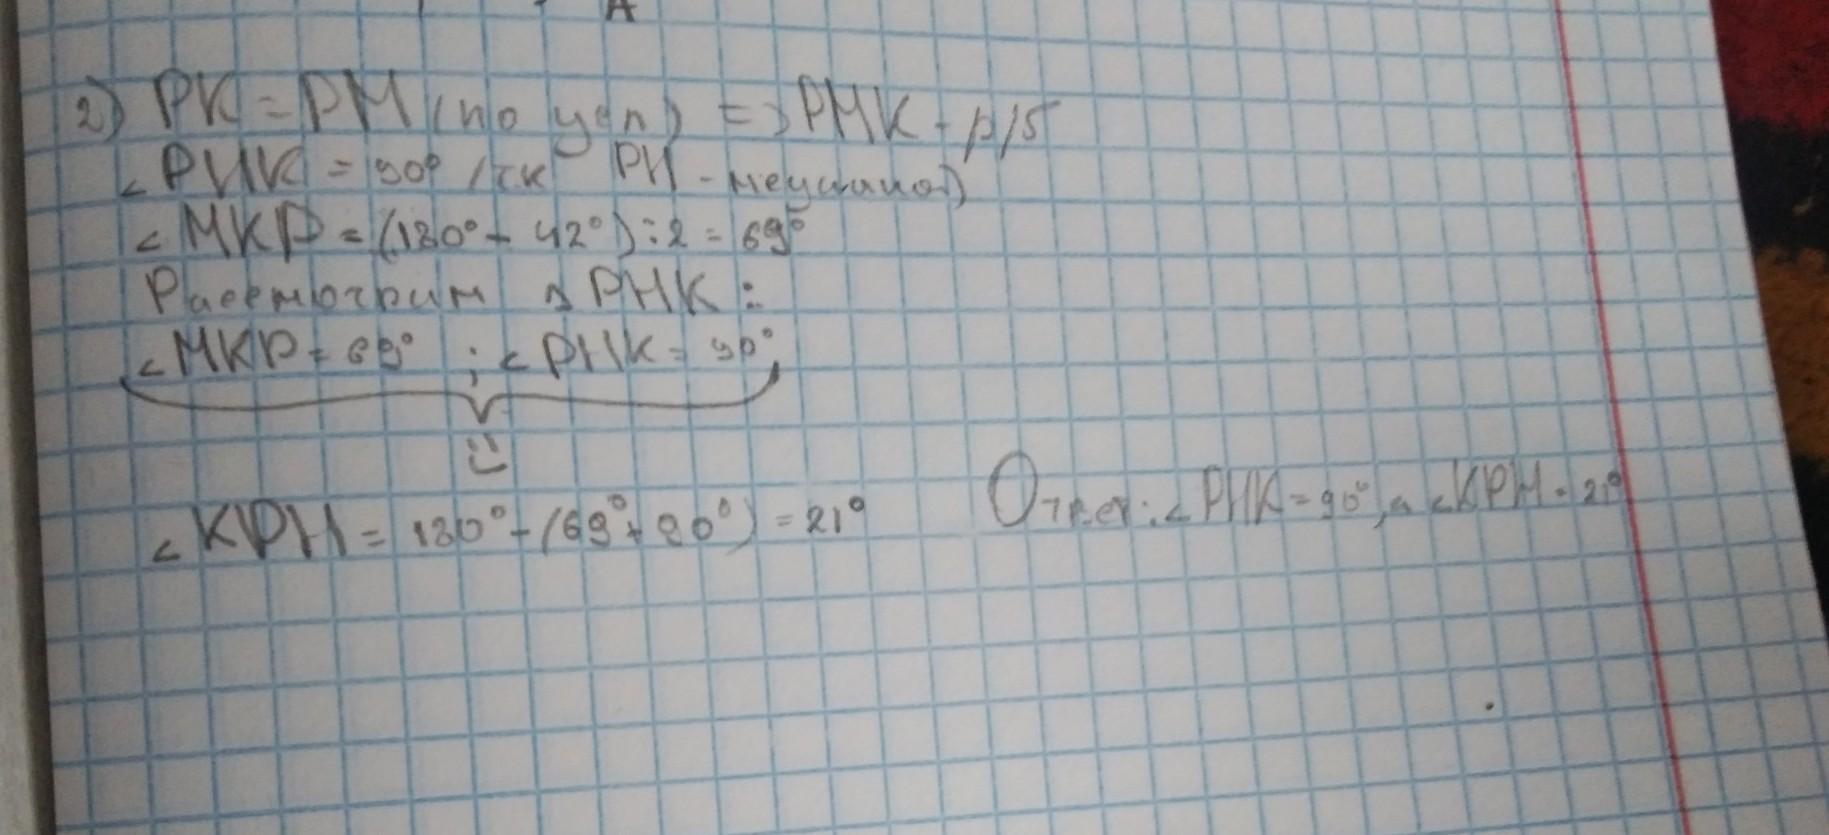 А
2) PK = PM (по усл) => PMK - р/б
∠PHK = 90° (тк PH - медиана)
∠MKP = (180° - 42°) : 2 = 69°
Расмотрим △ PHK :
∠MKP = 69° ; ∠PHK = 90°
∠KPH = 180° - (69° + 90°) = 21°
Ответ: ∠PHK = 90°, а ∠KPH = 21°